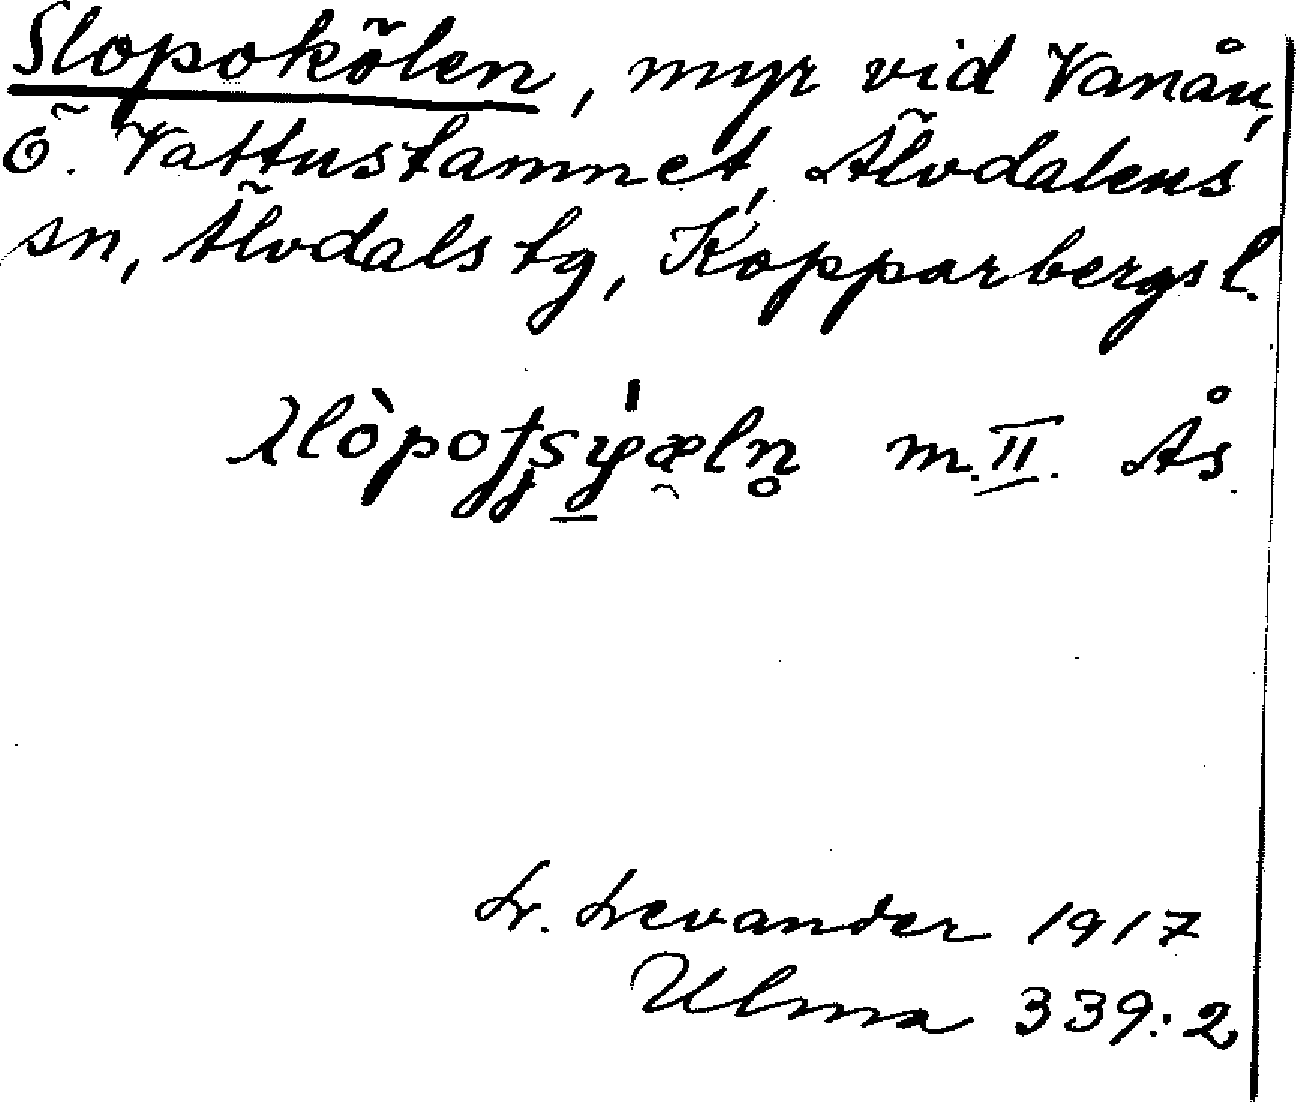 Slopokölen, myr vid Vanån,
Ö. Vattustamnet, Älvdalens
sn, Älvdals tg, Kopparbergs l.
m. II. Ås
L. Levander 1917
Ulma 339:2